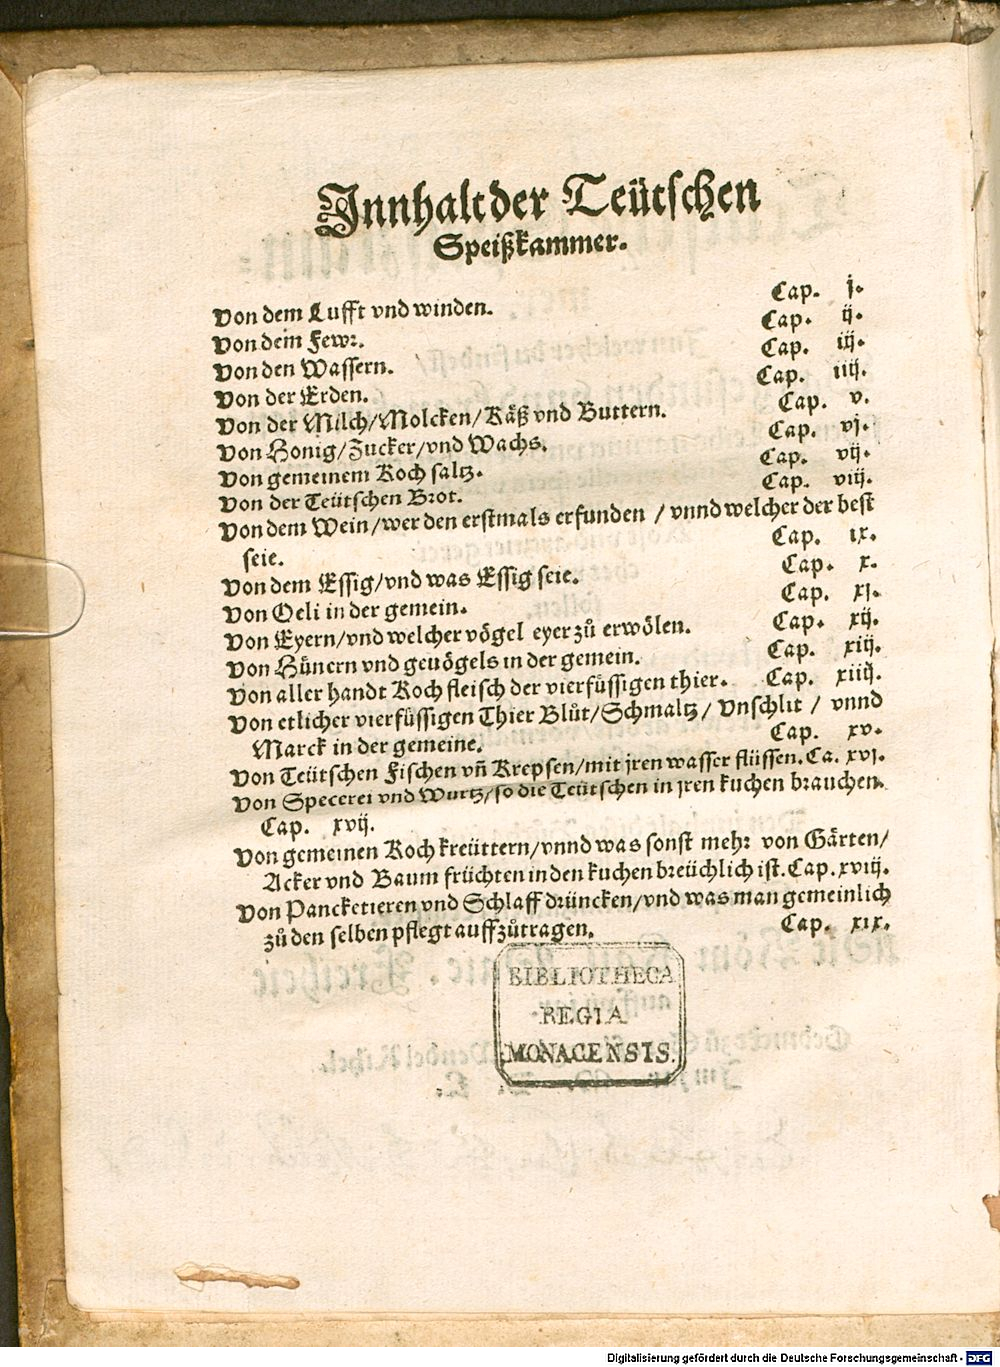 Innhalt der Teütschen
Speißkammer.
Von dem Lufft vnd winden. Cap. j.
Von dem Fewr. Cap. ij.
Von den Wassern. Cap. iij.
Von der Erden. Cap. iiij.
Von der Milch/Molcken/Käß vnd Buttern. Cap. v.
Von Honig/Zucker/vnd Wachs. Cap. vj.
Von gemeinem Koch saltz. Cap. vij.
Von der Teütschen Brot. Cap. viij.
Von dem Wein/wer den erstmals erfunden / vnnd welcher der best
seie. Cap. ix.
Von dem Essig/vnd was Essig seie. Cap. x.
Von Oeli in der gemein. Cap. xj.
Von Eyern/vnd welcher vögel eyer zů erwölen. Cap. xij.
Von Hünern vnd geuögels in der gemein. Cap. xiij.
Von aller handt Koch fleisch der vierfüssigen thier. Cap. xiiij.
Von etlicher vierfüssigen Thier Blůt/Schmaltz / Vnschlit / vnnd
Marck in der gemeine. Cap. xv.
Von Teütschen Fischen vñ Krepsen/mit jren wasser flüssen. Ca. xvj.
Von Specerei vnd Wurtz/so die Teütschen in jren kuchen brauchen.
Cap. xvij.
Von gemeinen Koch kreüttern/vnnd was sonst mehr von Gärten/
Acker vnd Baum früchten in den kuchen breüchlich ist. Cap. xviij.
Von Pancketieren vnd Schlaff drüncken/vnd was man gemeinlich
zů den selben pflegt auffzůtragen. Cap. xix.
BIBLIOTHECA
REGIA
MONACENSIS.
Digitalisierung gefördert durch die Deutsche Forschungsgemeinschaft - DFG